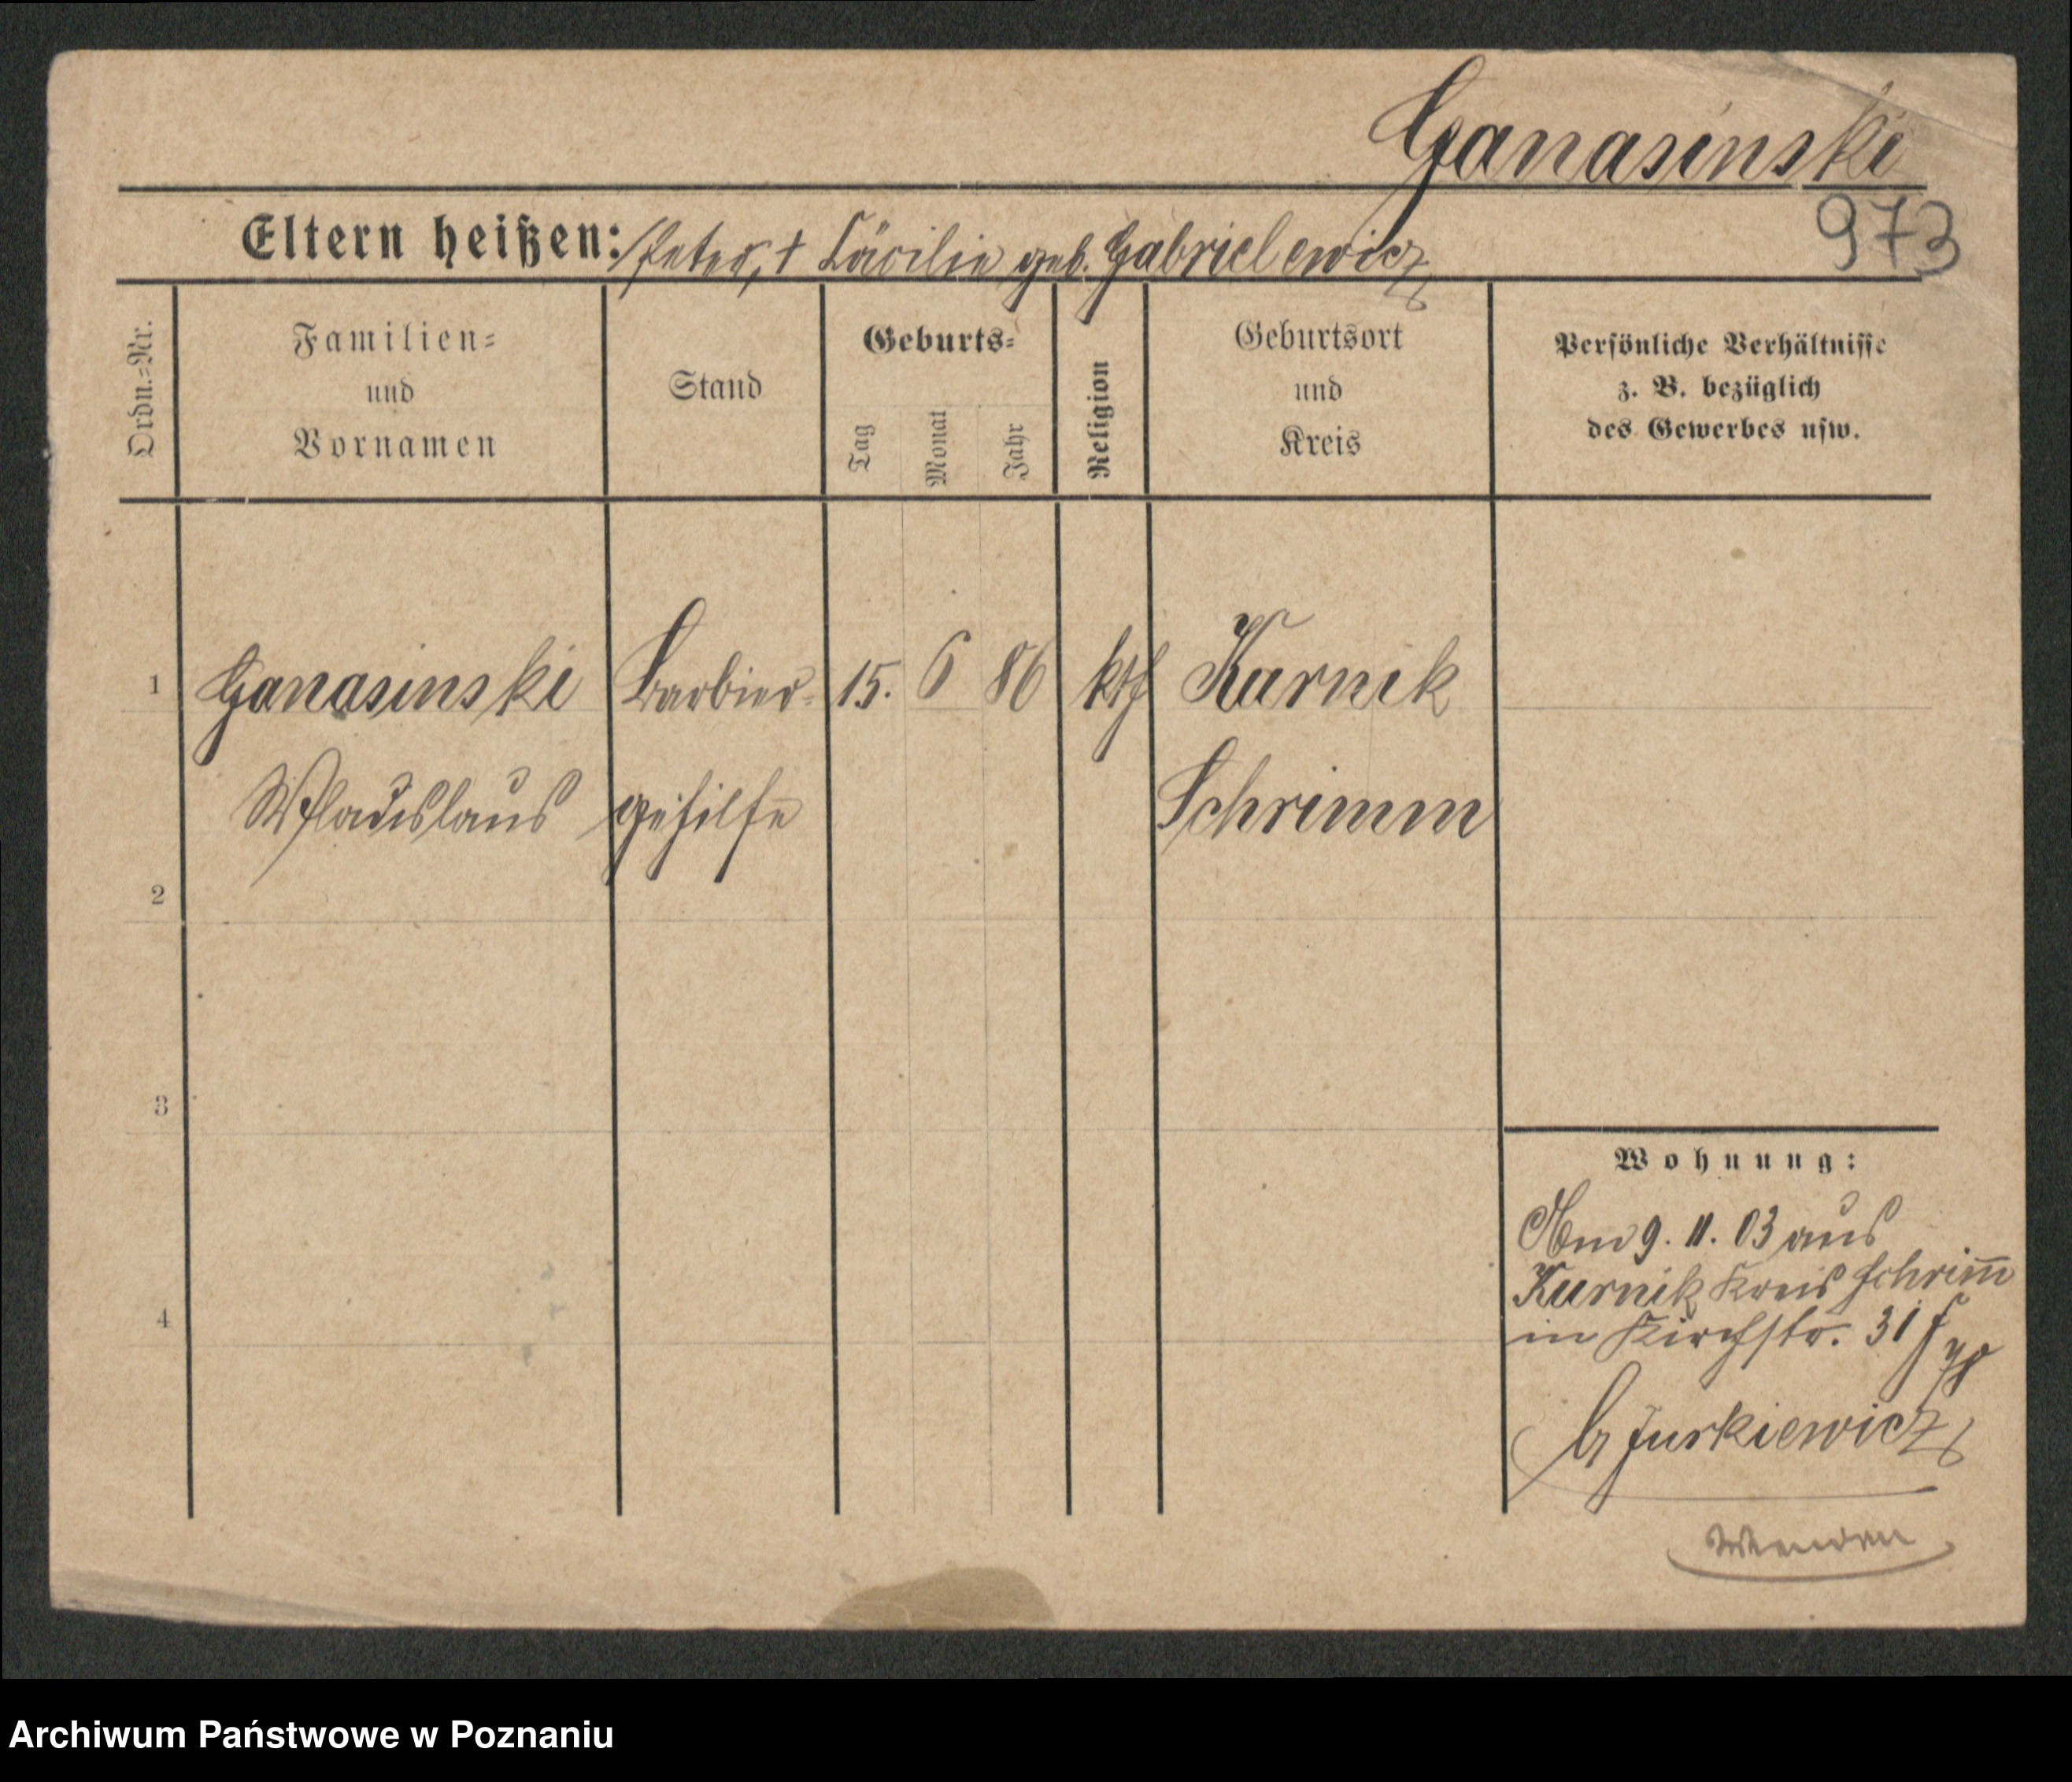 Ganasinski
973
Eltern heißen: Peter, † Cäcilie geb. Gabrielewicz
Ordn.-Nr.
Familien-
und
Vornamen
Stand
Geburts-
Tag
Monat
Jahr
Religion
Geburtsort
und
Kreis
Persönliche Verhältnisse
z. B. bezüglich
des Gewerbes usw.
1 Ganasinski Barbier- 15. 6 86 kth Kurnik
Wladislaus gehilfe Schrimm
2
3
4
Wohnung:
Am 9. 11. 03 aus
Kurnik Kreis Schrim̅
in Kirchstr. 31
b Jurkiewicz
Wenden
Archiwum Państwowe w Poznaniu